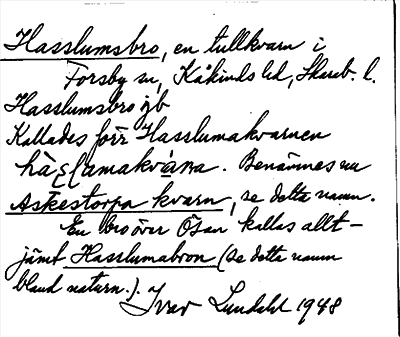 Hasslumsbro, en tullkvarn i
Forsby sn, Kåkinds hd, Skarab. l.
Hasslumsbro jb
Kallades förr Hasslumakvarnen
Benämnes nu
Askestorpa kvarn, se detta namn.
En bro över Ösan kallas allt-
jämt Hasslumabron (se detta namn
bland naturn.). Ivar Lundahl 1948